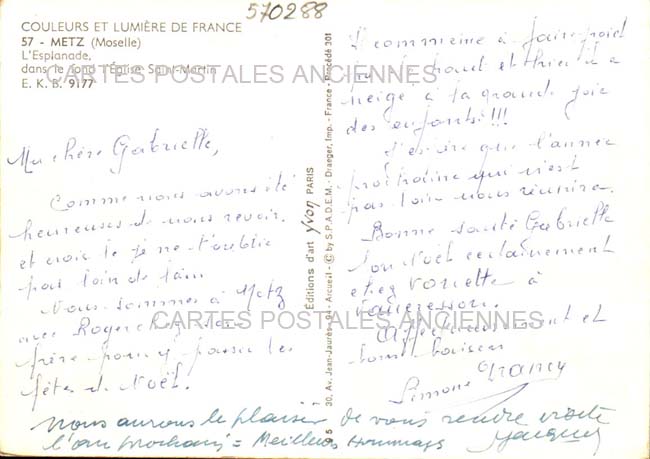 570288
COULEURS ET LUMIÈRE DE FRANCE
57 - METZ (Moselle)
L'Esplanade,
dans le fond l'Église Saint-Martin
E. K. B. 9177
CARTES POSTALES ANCIENNES
Ma chère Gabrielle,
Comme nous avons été
heureuses de nous revoir.
et crois le je ne t'oublie
pas loin de
Nous sommes à Metz
avec Roger chez son
frère pour y passer les
fêtes de Noël.
95 30, Av. Jean-Jaurès - 94 - Arcueil - © by S.P.A.D.E.M. - Draeger, Imp. - France - Procédé 301
Éditions d'art yvon PARIS
Il commence à faire froid
neige à la grande joie
des enfants!!!
J'espère que l'année
prochaine qui n'est
pas loin nous réunira.
Bonne santé Gabrielle
Noël certainement
chez à
Vaucresson.
CARTES POSTALES ANCIENNES
Affectueusement et
bons baisers
Simone Nancy
Nous aurons le plaisir de vous rendre visite
l'an prochain = Meilleurs Hommages
Jacques